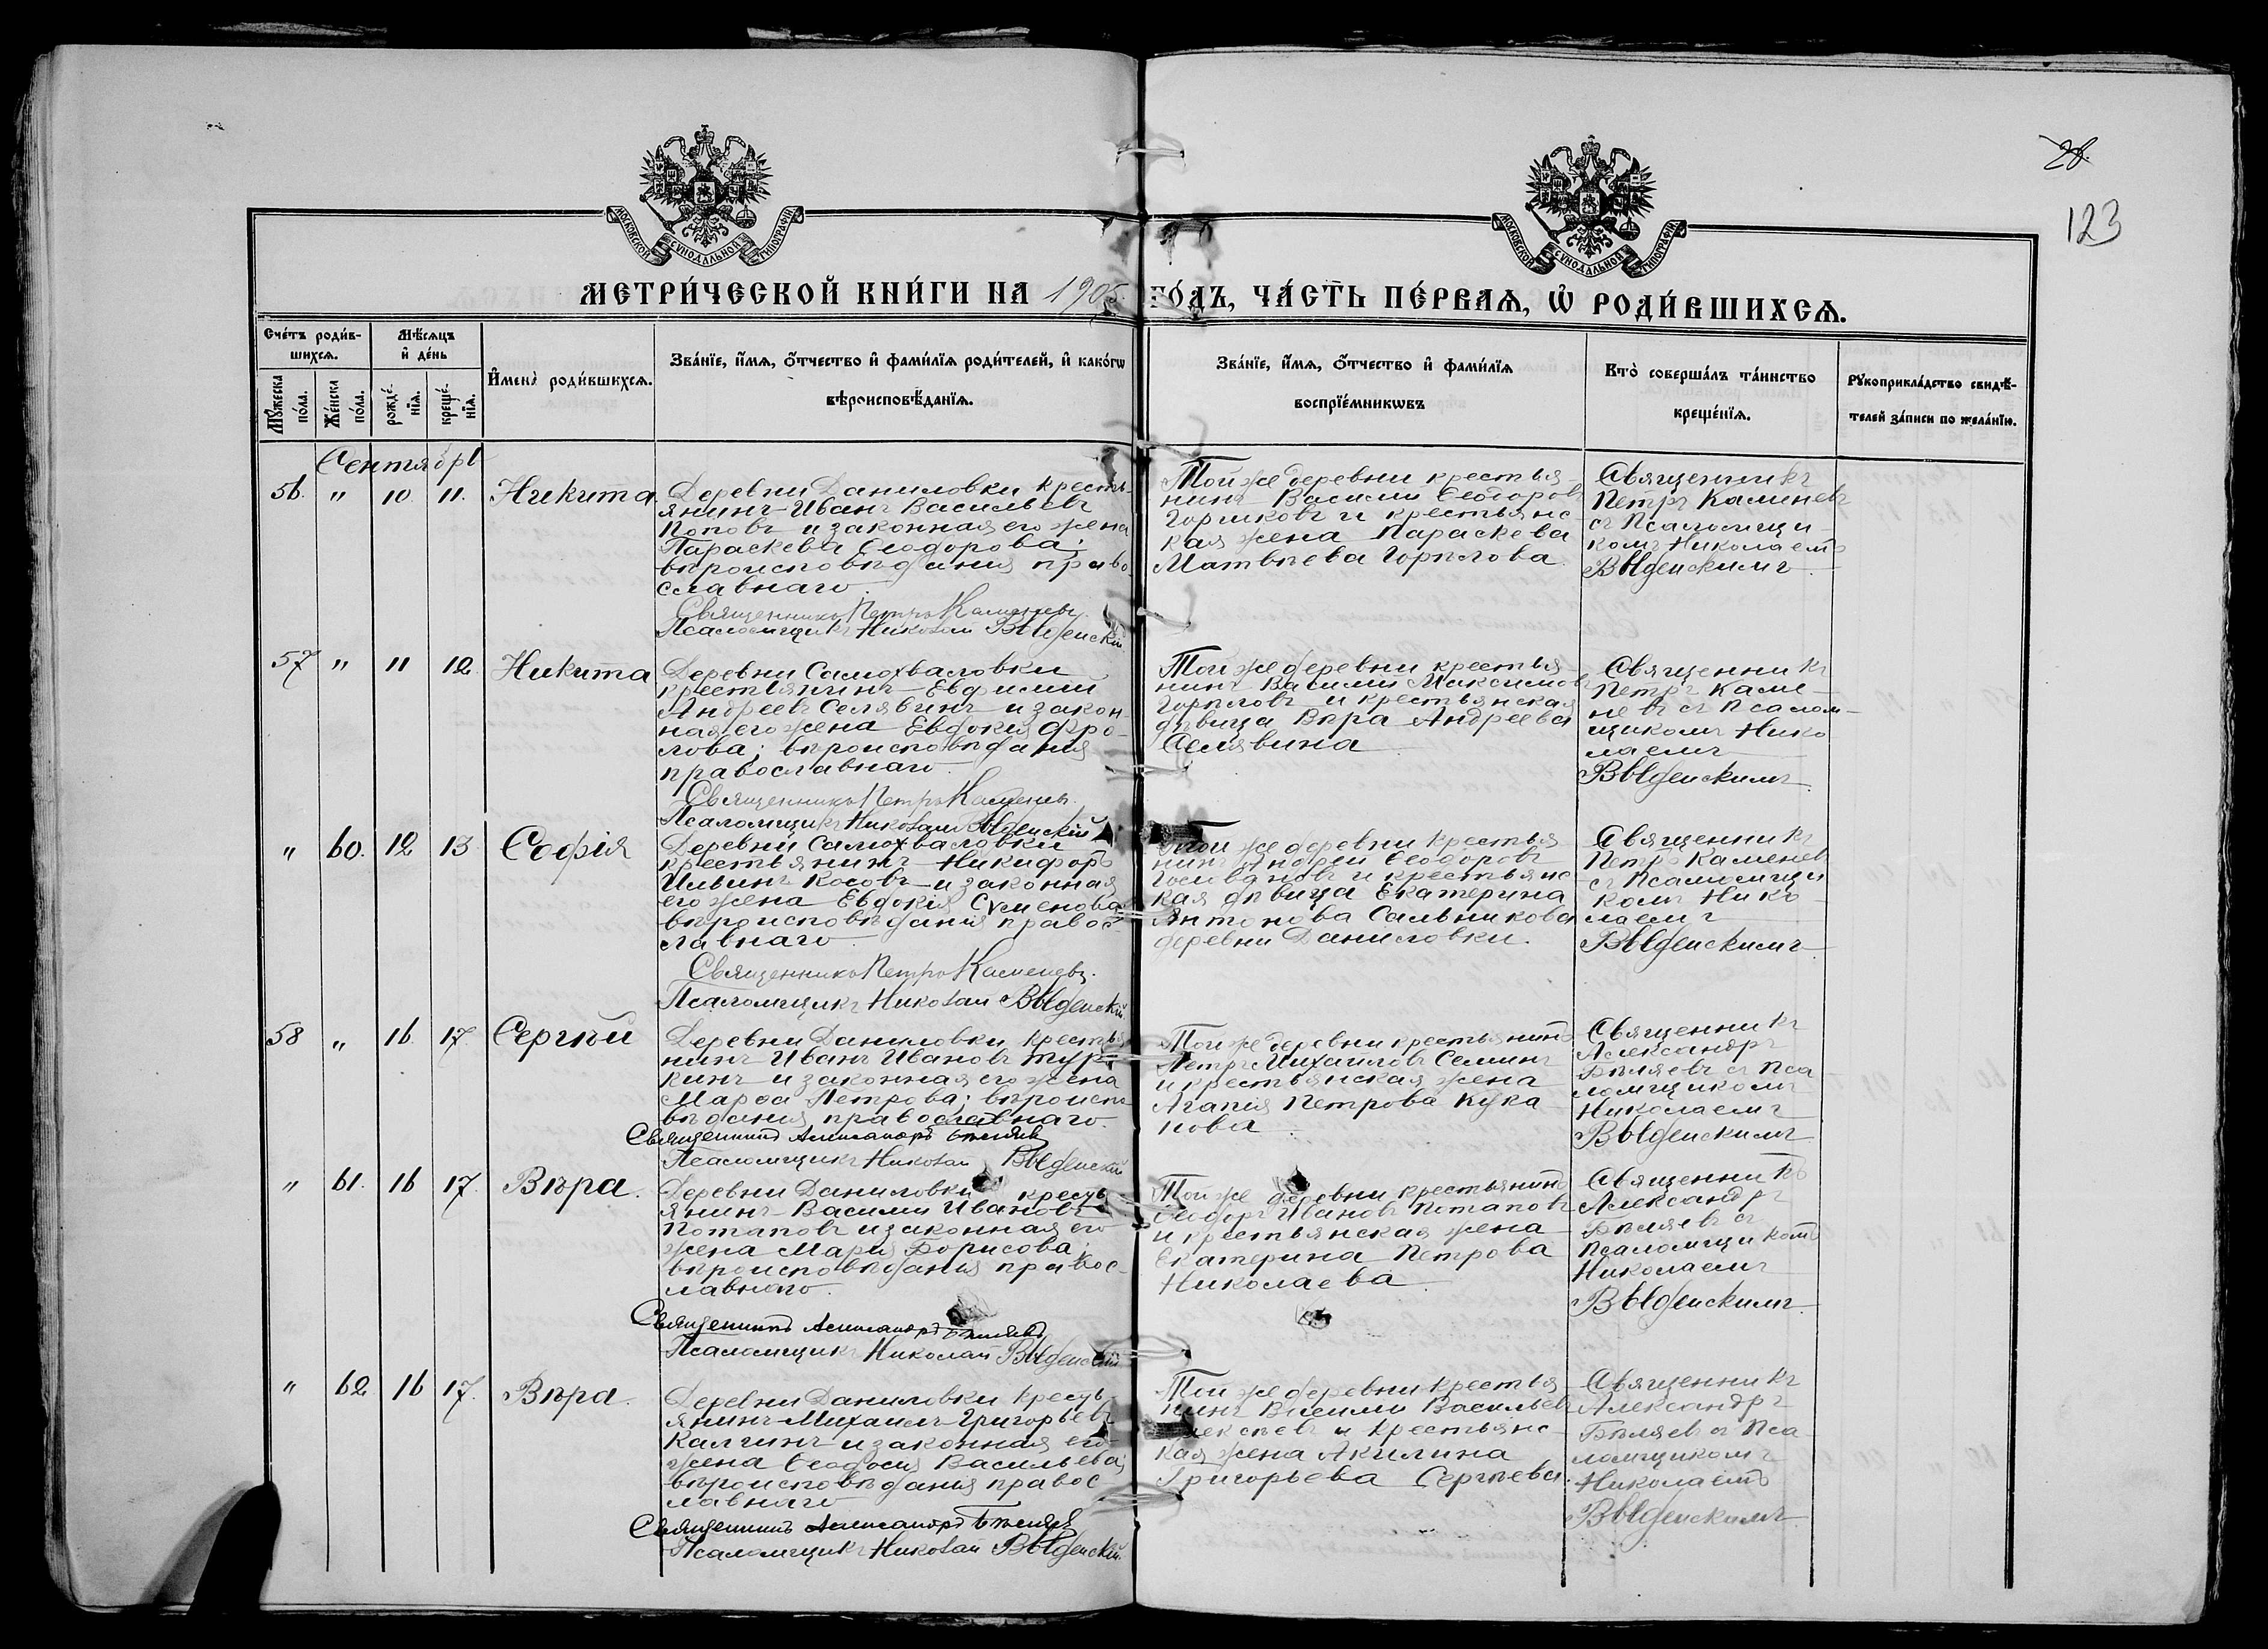 28.
123
МОСКОВСКОЙ СУНОДАЛЬНОЙ ТИПОГРАФІИ
МОСКОВСКОЙ СУНОДАЛЬНОЙ ТИПОГРАФІИ
МЕТРИ́ЧЕСКОЙ КНИ́ГИ НА 1905 ГО́ДЪ, ЧА́СТЬ ПЕ́РВАЯ, Ѡ РОДИ́ВШИХСЯ.
Сче́тъ роди́в-
шихся.
Мѣ́сяцъ
и де́нь
Му́жеска
по́ла.
Же́нска
по́ла.
рожде́-
нія.
креще́-
нія.
Имена̀ роди́вшихся.
Зва́ніе, и́мя, о́тчество и фами́лія роди́телей, и како́гѡ
вѣроисповѣ́данія.
Зва́ніе, и́мя, о́тчество и фами́лія
воспріе́мникѡвъ
Кто̀ соверша́лъ та́инство
креще́нія.
Рукоприкла́дство свидѣ́-
телей за́писи по жела́нію.
Сентябрь
56. " 10 11. Никита.
Деревни Даниловки кресть-
янинъ Иванъ Васильевъ
Поповъ и законная его жена
Параскева Ѳеодорова;
вѣроисповѣданія право-
славнаго.
Священникъ Петръ Каменевъ.
Псаломщикъ Николай Введенскій
Той же деревни крестья-
нинъ Василий Ѳеодоровъ
Горшковъ и крестьянс-
кая жена Параскева
Матвѣева Горѣлова.
Священникъ
Петръ Каменевъ
съ Псаломщи-
комъ Николаемъ
Введенскимъ.
57 " 11 12. Никита
Деревни Самохваловки
крестьянинъ Евфимій
Андреевъ Селявинъ и закон-
ная его жена Евдокия Фро-
лова; вѣроисповѣдания
православнаго.
Священникъ Петръ Каменевъ.
Псаломщикъ Николай Введенскій
Той же деревни крестья-
нинъ Василий Максимовъ
Горѣловъ и крестьянская
дѣвица Вѣра Андреева
Селявина.
Священникъ
Петръ Каме-
невъ съ Псалом-
щикомъ Нико-
лаемъ
Введенскимъ.
" 60. 12 13 Софія
Деревни Самохваловки
крестьянинъ Никифоръ
Ильинъ Косовъ и законная
его жена Евдокія Сѵменова
вѣроисповѣданія правос-
лавнаго.
Священникъ Петръ Каменевъ.
Псаломщикъ Николай Введенскій
Той же деревни крестья
нинъ Андрей Ѳеодоровъ
и крестьянс-
кая дѣвица Екатерина
Антонова Сальникова
деревни Даниловки.
Священникъ
Петръ Каменевъ
съ Псаломщи
комъ Нико-
лаемъ
Введенскимъ.
58 " 16 17. Сергѣй
Деревни Даниловки крестья
нинъ Иванъ Ивановъ Тур-
кинъ и законная его жена
Марѳа Петрова; вѣроиспо-
вѣдания православнаго.
Священникъ Александръ Бѣляевъ
Псаломщикъ Николай Введенскій
Той же деревни крестьянинъ
Петръ Михайловъ Семинъ
и крестьянская жена
Агапія Петрова Кука-
нова.
Священникъ
Александръ
Бѣляевъ съ Пса
ломщикомъ
Николаемъ
Введенскимъ
" 61. 16 17. Вѣра.
Деревни Даниловки кресть-
янинъ Василий Ивановъ
Потаповъ и законная его
жена Мария Борисова;
вѣроисповѣдания правос-
лавнаго.
Священникъ Александръ Бѣляевъ
Псаломщикъ Николай Введенскій
Той же деревни крестьянинъ
Ѳеодоръ Ивановъ Потаповъ
и крестьянская жена
Екатерина Петрова
Николаева.
Священникъ
Александръ
Бѣляевъ съ
Псаломщикомъ
Николаемъ
Введенскимъ.
" 62 16 17. Вѣра.
Деревни Даниловки кресть-
янинъ Михаилъ Григорьевъ
Калгинъ и законная его
жена Ѳеодосия Васильева;
вѣроисповѣдания правос
лавнаго
Священникъ Александръ Бѣляевъ
Псаломщикъ Николай Введенскій.
Той же деревни крестья
нинъ Василий Васильевъ
и крестьянс-
кая жена Акилина
Григорьева Сергѣева.
Священникъ
Александръ
Бѣляевъ съ Пса
ломщикомъ
Николаемъ
Введенскимъ.